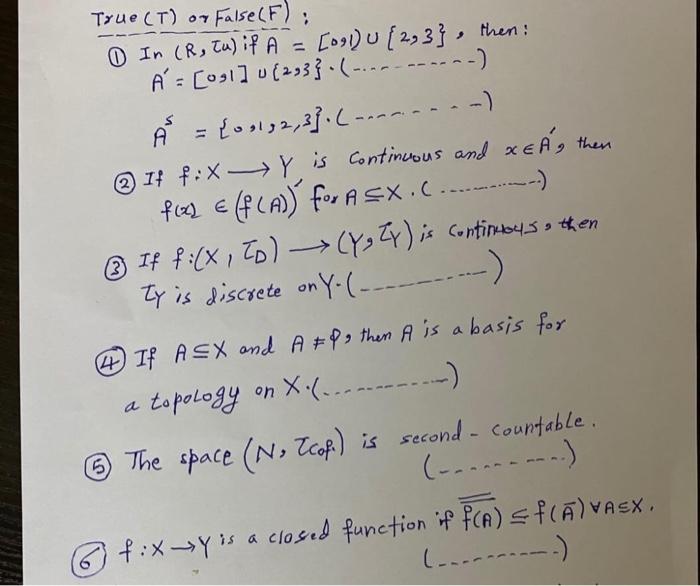 True (T) or False (F) :
① In (R, τu) if A = [0,1) ∪ {2,3}, then:
A′ = [0,1] ∪ {2,3}. (-----------)
Aˢ = {0,1,2,3}. (---------)
② If f: X → Y is continuous and x ∈ A′, then
f(x) ∈ (f(A))′ for A ⊆ X. (-----------)
③ If f: (X, τD) → (Y, τY) is continuous, then
τY is discrete on Y. (-----------)
④ If A ⊆ X and A ≠ φ, then A is a basis for
a topology on X. (------------)
⑤ The space (N, τcof.) is second - countable.
(---------)
⑥ f: X → Y is a closed function if f(A)‾ ⊆ f(Ā) ∀ A ⊆ X.
(----------)